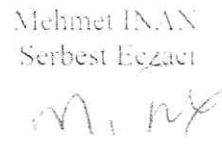 Mehmet INAN
Serbest Eczacı